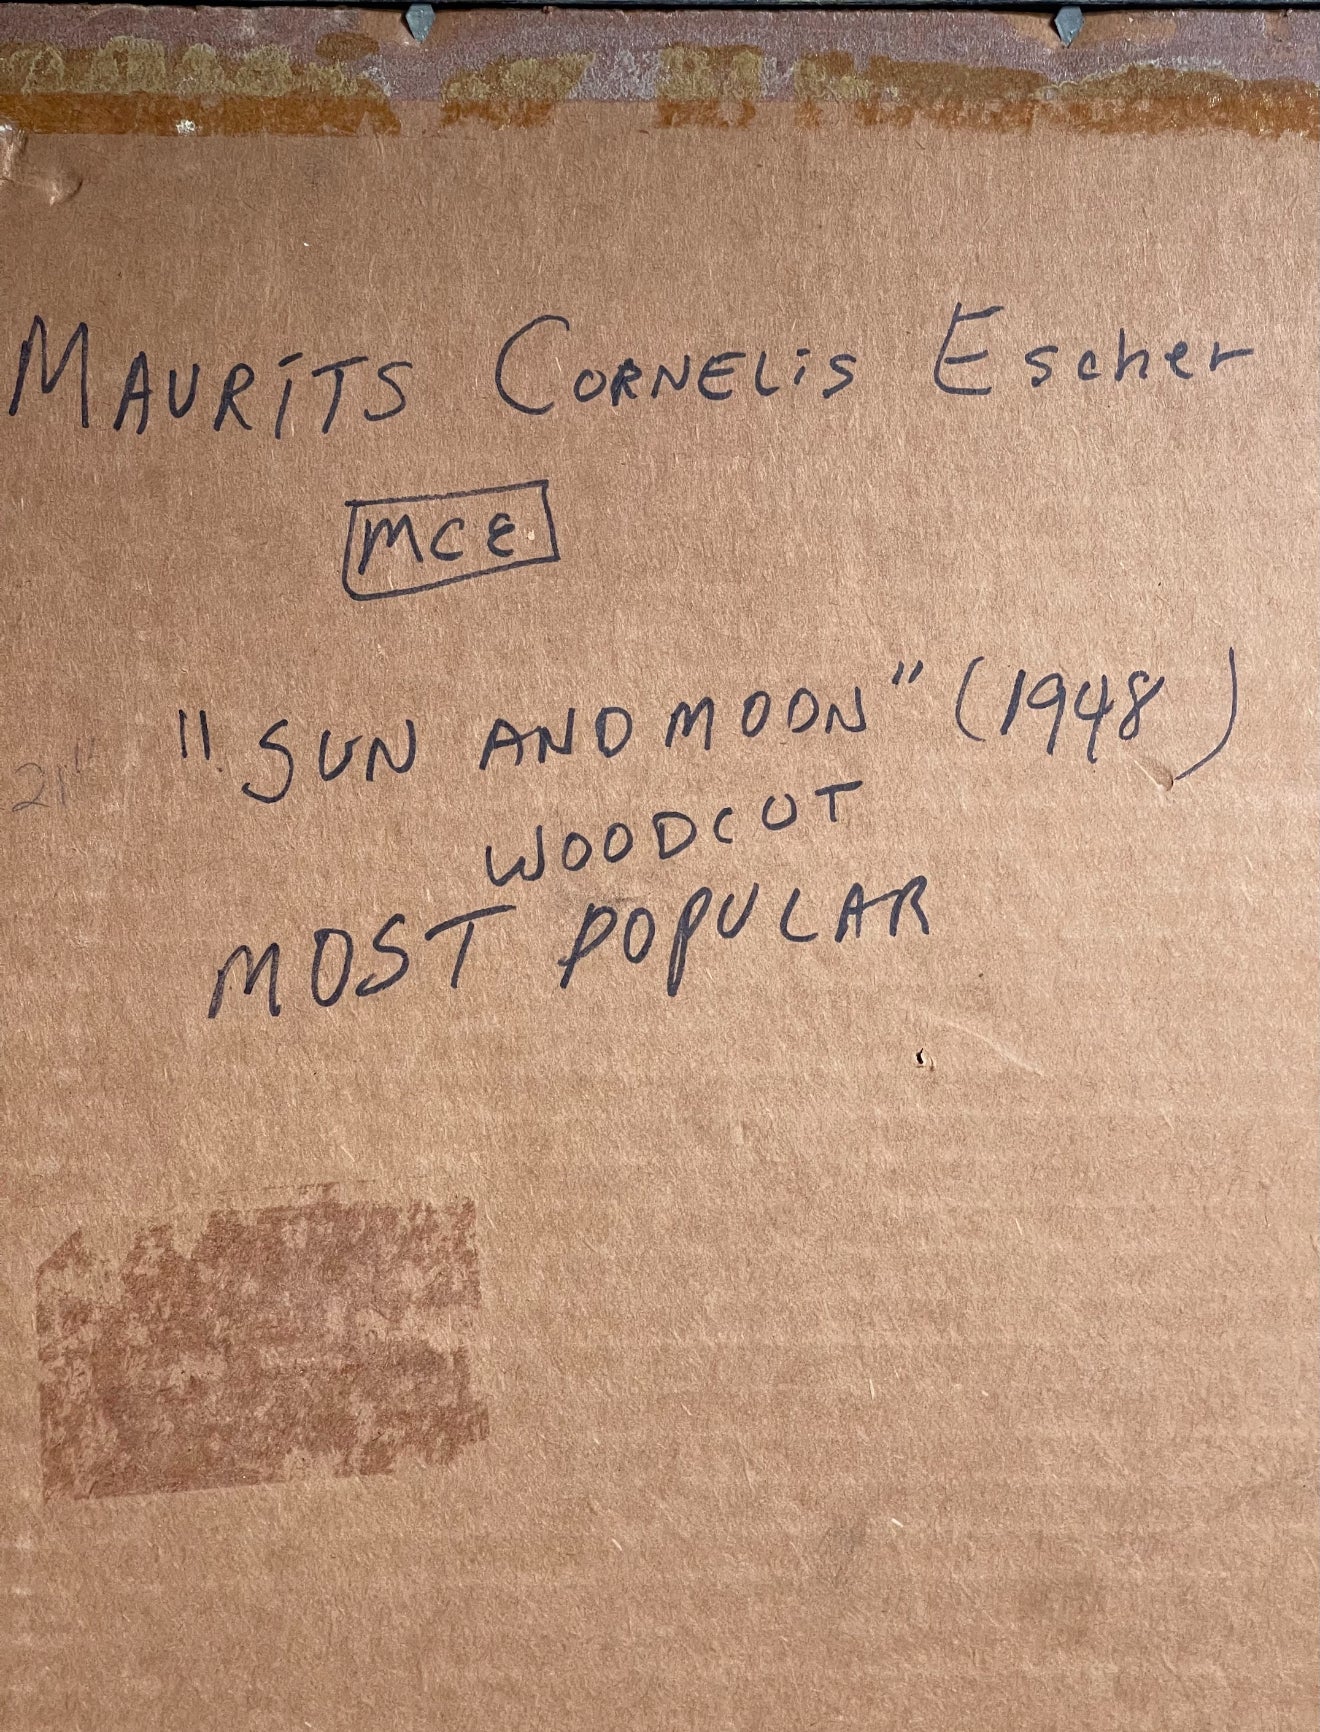 MAURITS CORNELIS Escher
MCE
"SUN AND MOON" (1948)
21"
WOODCUT
MOST POPULAR